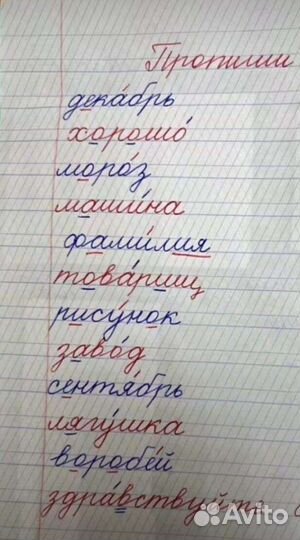 Пропиши
дека́брь
хорошо́
моро́з
маши́на
фами́лия
това́рищ
рису́нок
заво́д
сентя́брь
лягу́шка
воробе́й
здра́вствуйте
Avito